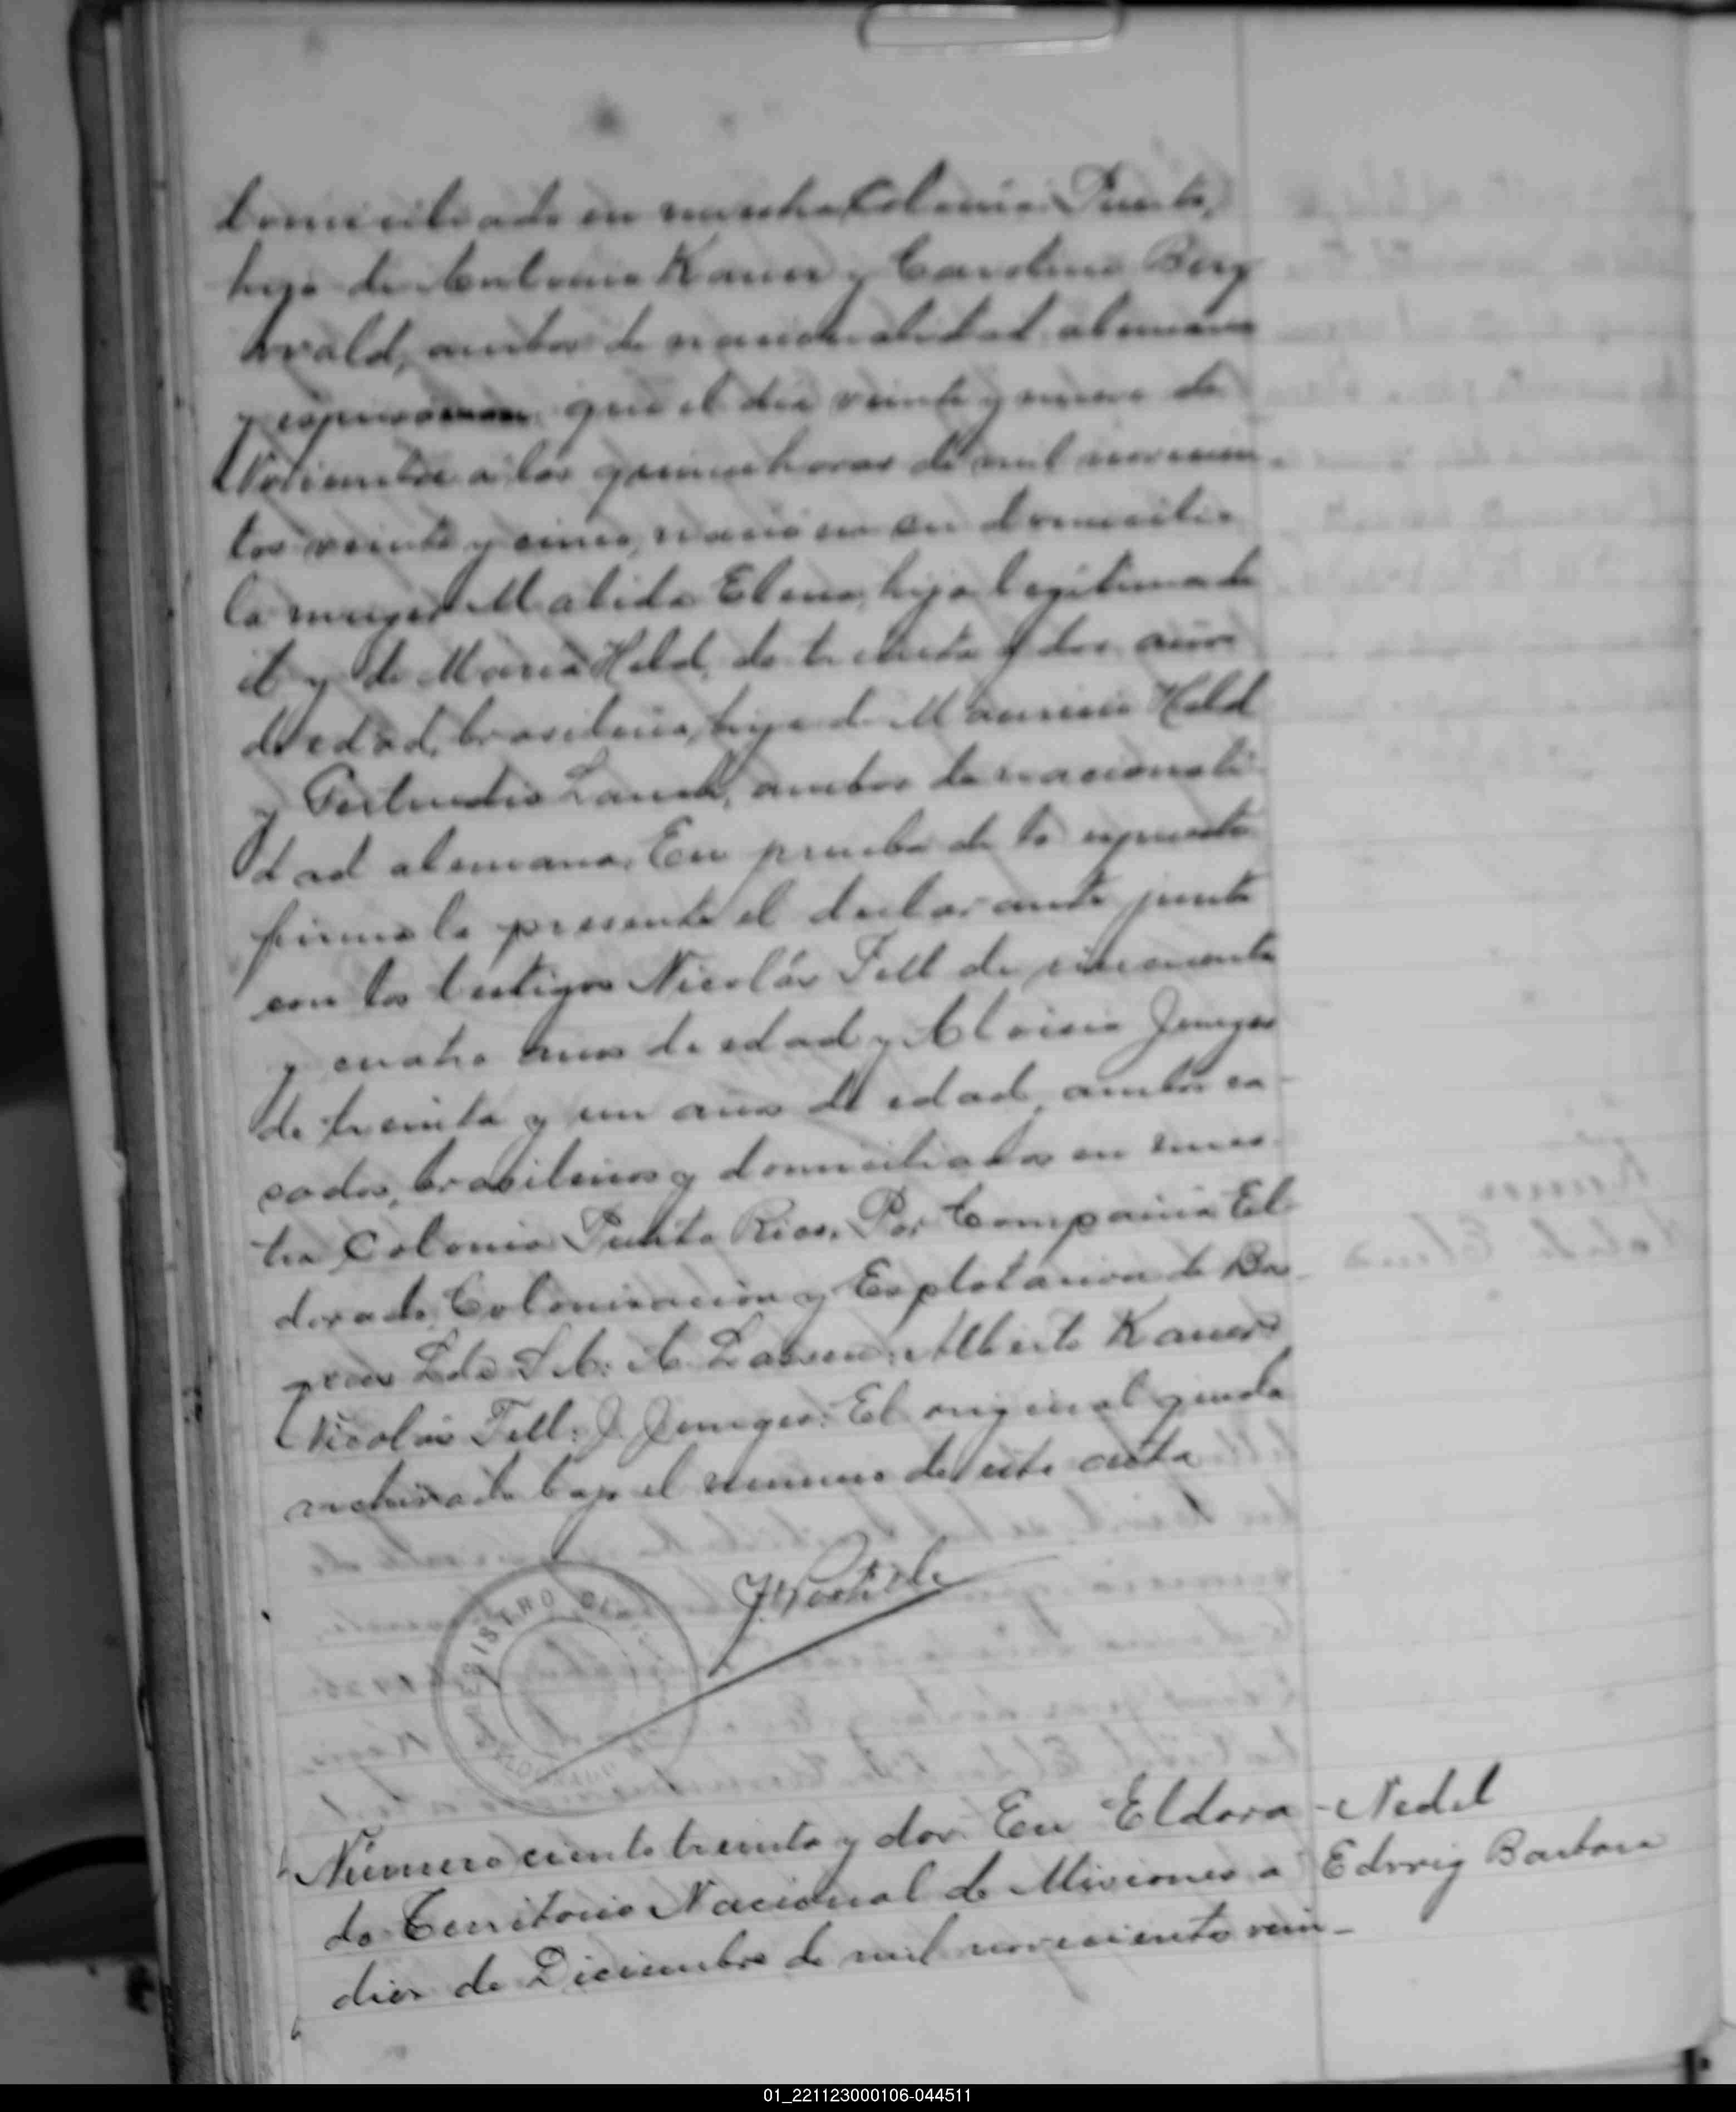 domiciliado en nuestra Colonia Puerto,
hijo de Antonio Kauer y Carolina Berg
wald, ambos de nacionalidad alemana
y expuso que el dia veinte y nueve de
Noviembre a las quince horas de mil novecien
tos veinte y cinco, nacio en su domicilio
la mujer Malida Elena, hija legitima de
él y de Maria Held, de treinta y dos años
de edad, brasileña, hija de Mauricio Held
y Gertrudis ambos de nacionali
dad alemana. En prueba de lo expuesto
firma la presente el declarante junto
con los testigos Nicolás Tell de cincuenta
y cuatro anos de edad y Aloisio Junges
de treinta y un anos de edad, ambos ca-
sados, brasileños y domiciliados en nues
tra Colonia Puerto Rico. Por Compañia El-
dorado, Colonizacion y Explotacion de Bos
ques Lda S. A.: A. Alberto Kauer:
Nicolás Tell: J. Junges: El original queda
archivado bajo el numero de este acta
REGISTRO CIVIL
ELDORADO
Número ciento treinta y dos. En Eldora-
do Territorio Nacional de Misiones a
diez de Diciembre de mil novecientos vein-
Nedel
Edwig Barbara
01_221123000106-044511